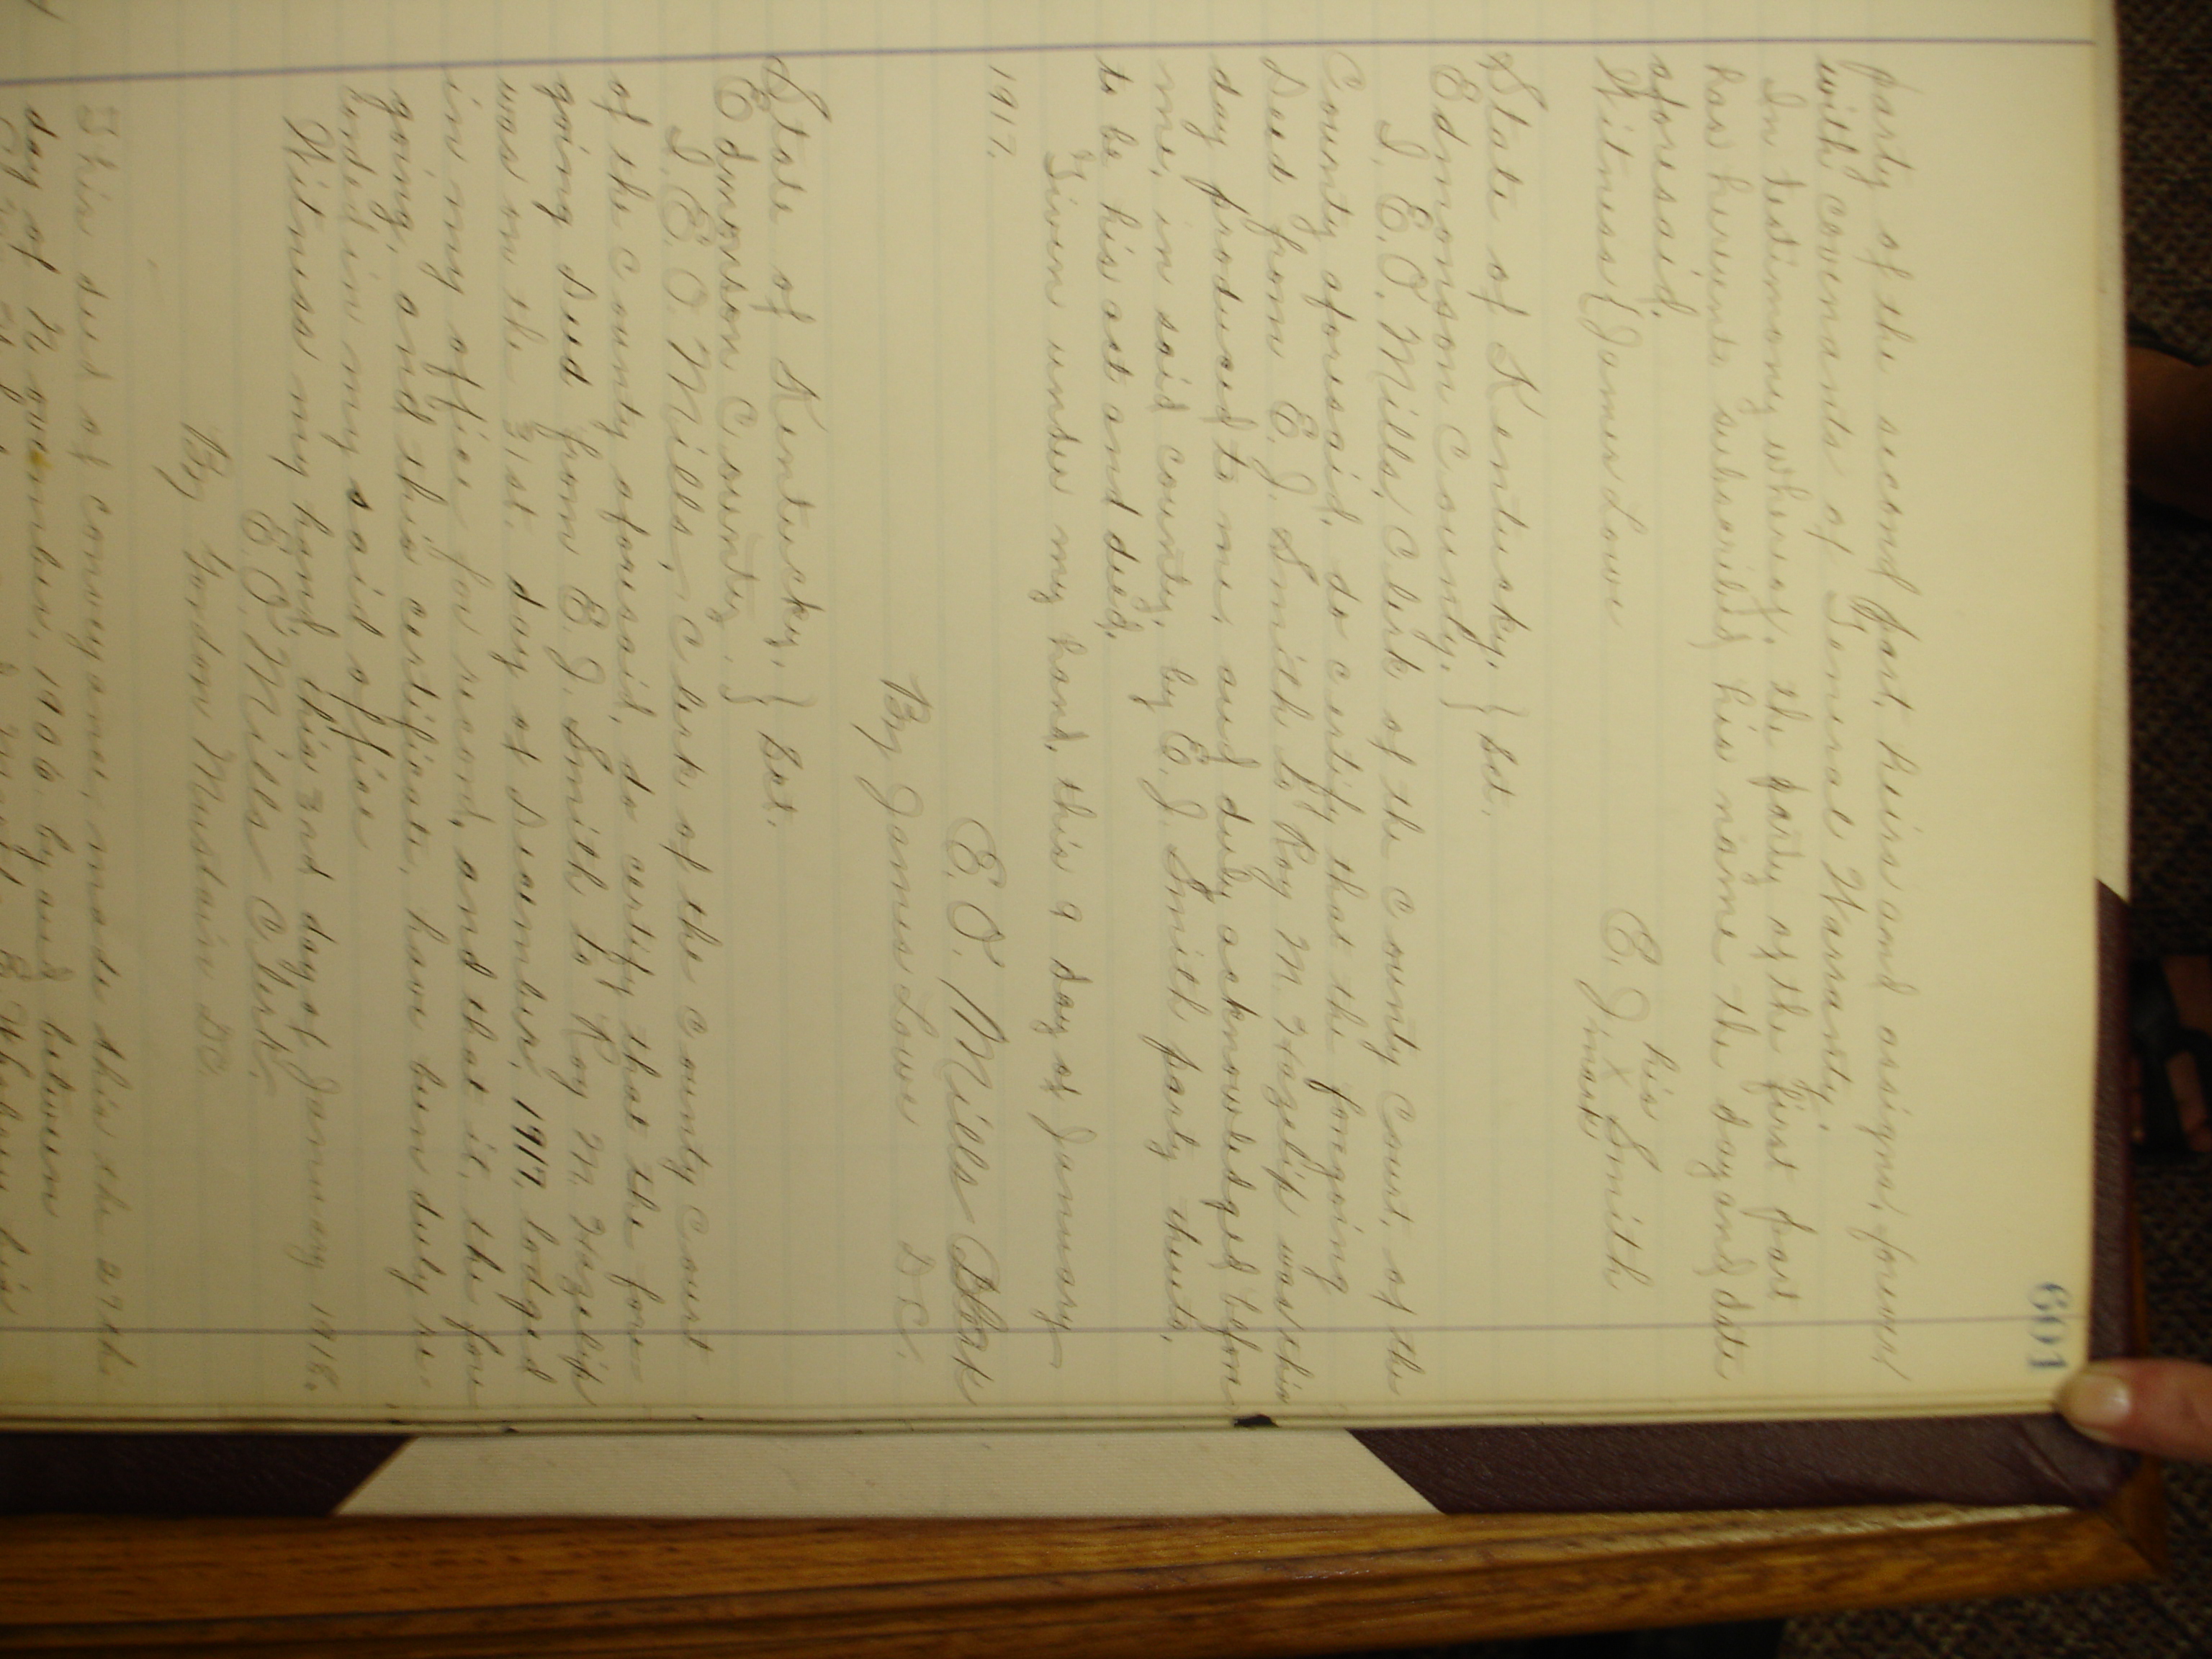 601
party of the second part, heirs and assigns, forever
with covenants of General Warranty.
In testimony whereof, the party of the first part
has hereunto subscribed his name the day and date
aforesaid.
his
Witness { James Lowe E. J. X Smith
mark
State of Kentucky, } Sct.
Edmonson County,
I, E. O. Mills, Clerk of the County Court, of the
County aforesaid, do certify that the foregoing
Deed from E. J. Smith to Roy M. Hazelip was this
day produced to me, and duly acknowledged before
me, in said county, by E. J. Smith party thereto,
to be his act and deed.
Given under my hand, this 9 day of January
1917.
E. O. Mills Clerk
By James Lowe D.C.
State of Kentucky, } Sct.
Edmonson County,
I, E. O. Mills, Clerk of the County Court
of the County aforesaid, do certify that the fore
going Deed from E. J. Smith to Roy M. Hazelip
was on the 31st. day of December, 1917, lodged
in my office for record, and that it, the fore
going, and this certificate, have been duly re-
corded in my said office
Witness my hand, this 3rd day of January 1918.
E. O. Mills Clerk.
By Gordon Mustain DC.
This deed of conveyance, made this the 27th.
day of November, 1906. by and between